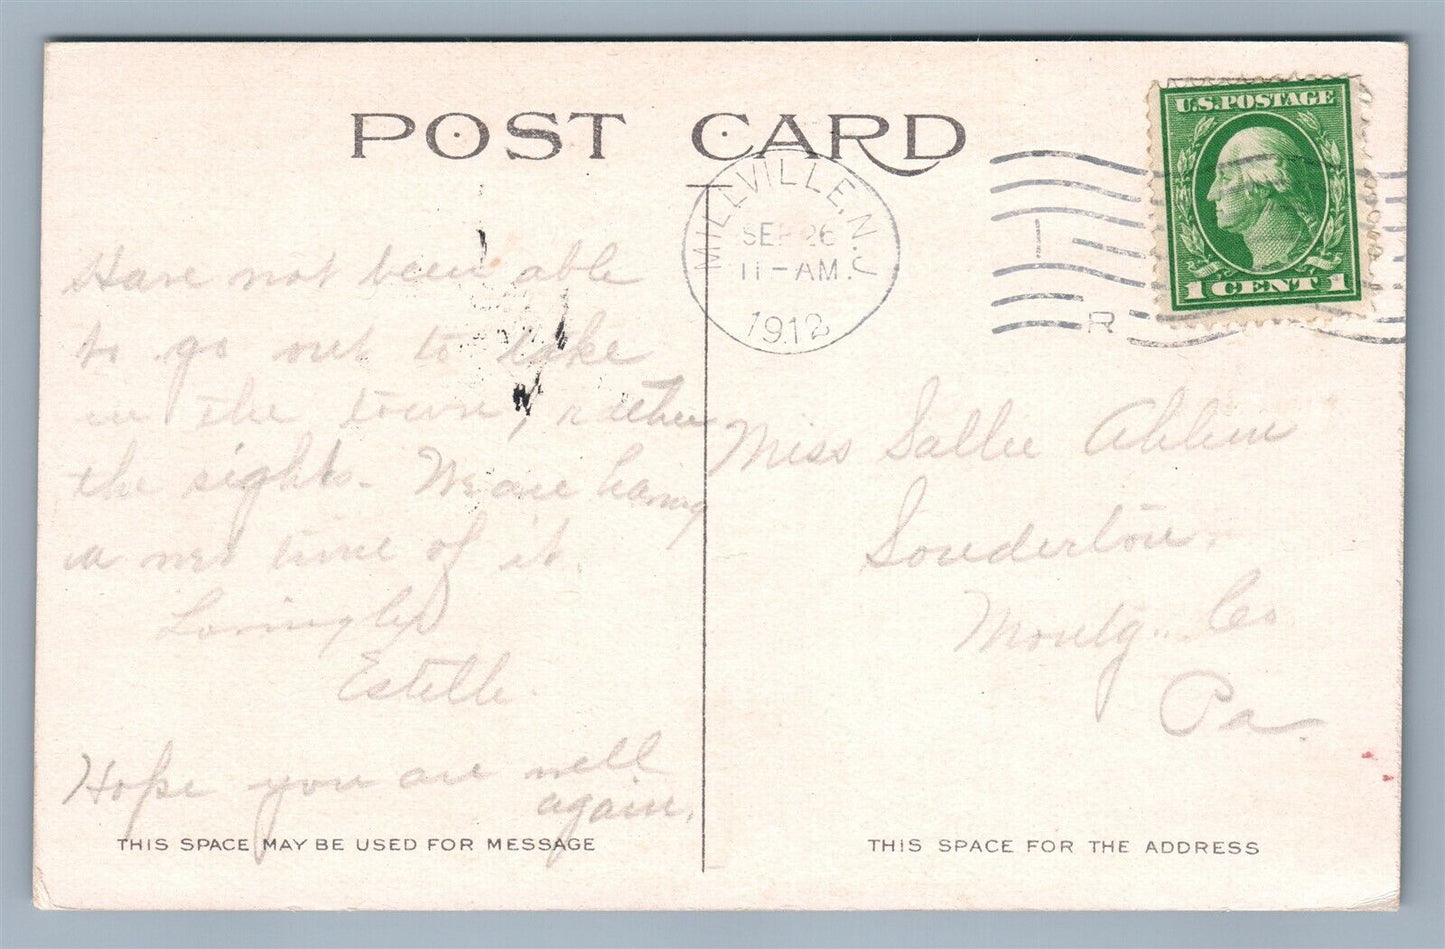 POST CARD
MILLVILLE, N.J.
SEP 26
11-AM.
1912
1
R
U.S. POSTAGE
1 CENT 1
Have not been able
to go out to take
in the town, rather
the sights. We are having
a wet time of it.
Lovingly
Estelle.
Hope you are well
again.
Miss Sallie
Souderton.
Montg. Co
Pa.
THIS SPACE MAY BE USED FOR MESSAGE
THIS SPACE FOR THE ADDRESS